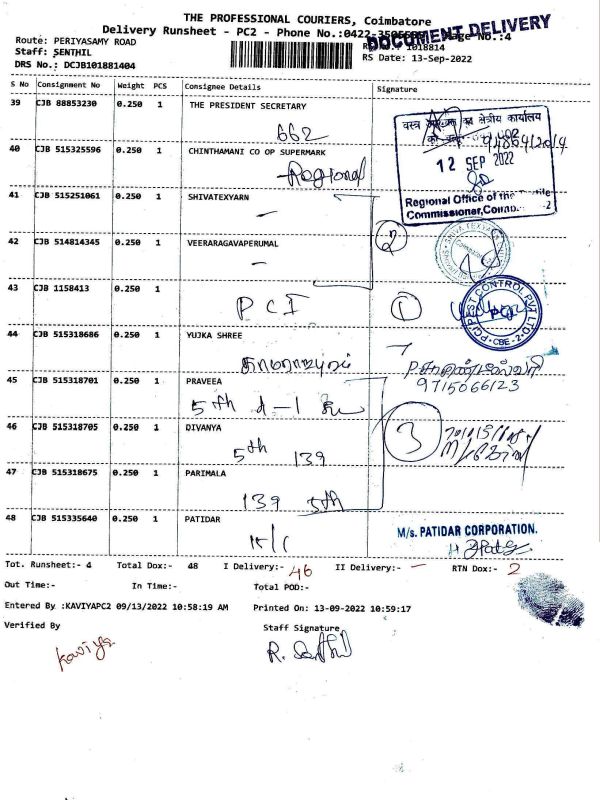 THE PROFESSIONAL COURIERS, Coimbatore
Delivery Runsheet - PC2 - Phone No.:0422-
Page No.:4
DOCUMENT DELIVERY
Route: PERIYASAMY ROAD
1018814
Staff: SENTHIL
RS Date: 13-Sep-2022
DRS No.: DCJB101881404
S No Consignment No Weight PCS Consignee Details Signature
39 CJB 88853230 0.250 1 THE PRESIDENT SECRETARY
662
40 CJB 515325596 0.250 1 CHINTHAMANI CO OP SUPERMARK
Regional
क्षेत्रीय कार्यालय
12 SEP 2022
Regional Office of the Textile
Commissioner, Coimbatore-2
41 CJB 515251061 0.250 1 SHIVATEXYARN
—
42 CJB 514814345 0.250 1 VEERARAGAVAPERUMAL
—
2
SHIVA TEXYARN
43 CJB 1158413 0.250 1
PCI
1
PCI PEST CONTROL PVT LTD.
PCI
CBE-2
44 CJB 515318686 0.250 1 YUJKA SHREE
காமராஜபுரம்
9715066123
45 CJB 515318701 0.250 1 PRAVEEA
5th
46 CJB 515318705 0.250 1 DIVANYA
5th 139
3
47 CJB 515318675 0.250 1 PARIMALA
139 5th
48 CJB 515335640 0.250 1 PATIDAR
M/s. PATIDAR CORPORATION.
Tot. Runsheet:- 4 Total Dox:- 48 I Delivery:- 46 II Delivery:- — RTN Dox:- 2
Out Time:- In Time:- Total POD:-
Entered By :KAVIYAPC2 09/13/2022 10:58:19 AM Printed On: 13-09-2022 10:59:17
Verified By Staff Signature
Kaviya
R. Senthil